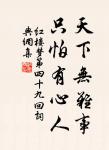 天下無難事
只怕有心人
紅樓夢第四十九回詞
典網集